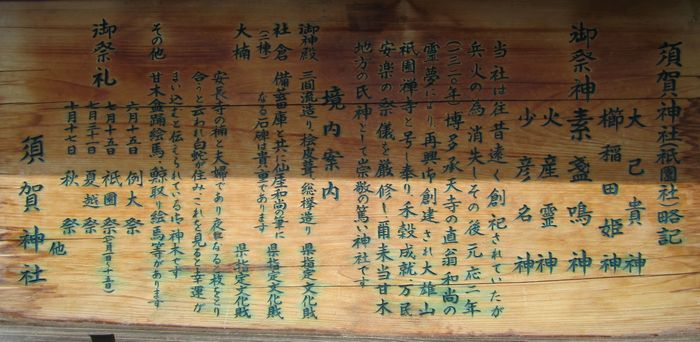 須賀神社(祇園社)略記
大己貴神
櫛稲田姫神
御祭神 素盞鳴神
火産霊神
少彦名神
当社は往昔遠く創祀されていたが
兵火の為消失しその後元応二年
(一三二〇年)博多承天寺の直翁和尚の
霊夢により再興御創建され大雄山
祇園禅寺と号し奉り禾穀成就万民
安楽の祭儀を厳修し爾来当甘木
地方の氏神として崇敬の篤い神社です
境内案内
御神殿 三間流造り桧皮葺総欅造り 県指定文化財
社倉(二棟) 備荒倉庫と共に仙厓和尚の筆に 県指定文化財
なる石碑は貴重であります
大楠 県指定文化財
安長寺の楠と夫婦であり反対なる枝もとり
合うと云われ白蛇が住みこれを見ると幸運が
まい込むと伝えられている御神木です
その他 甘木盆踊絵馬、鯨取り絵馬等があります
御祭礼
六月十五日 例大祭
七月十五日 祇園祭(七月一日〜十五日)
七月三十一日 夏越祭
十月十七日 秋祭 他
須賀神社